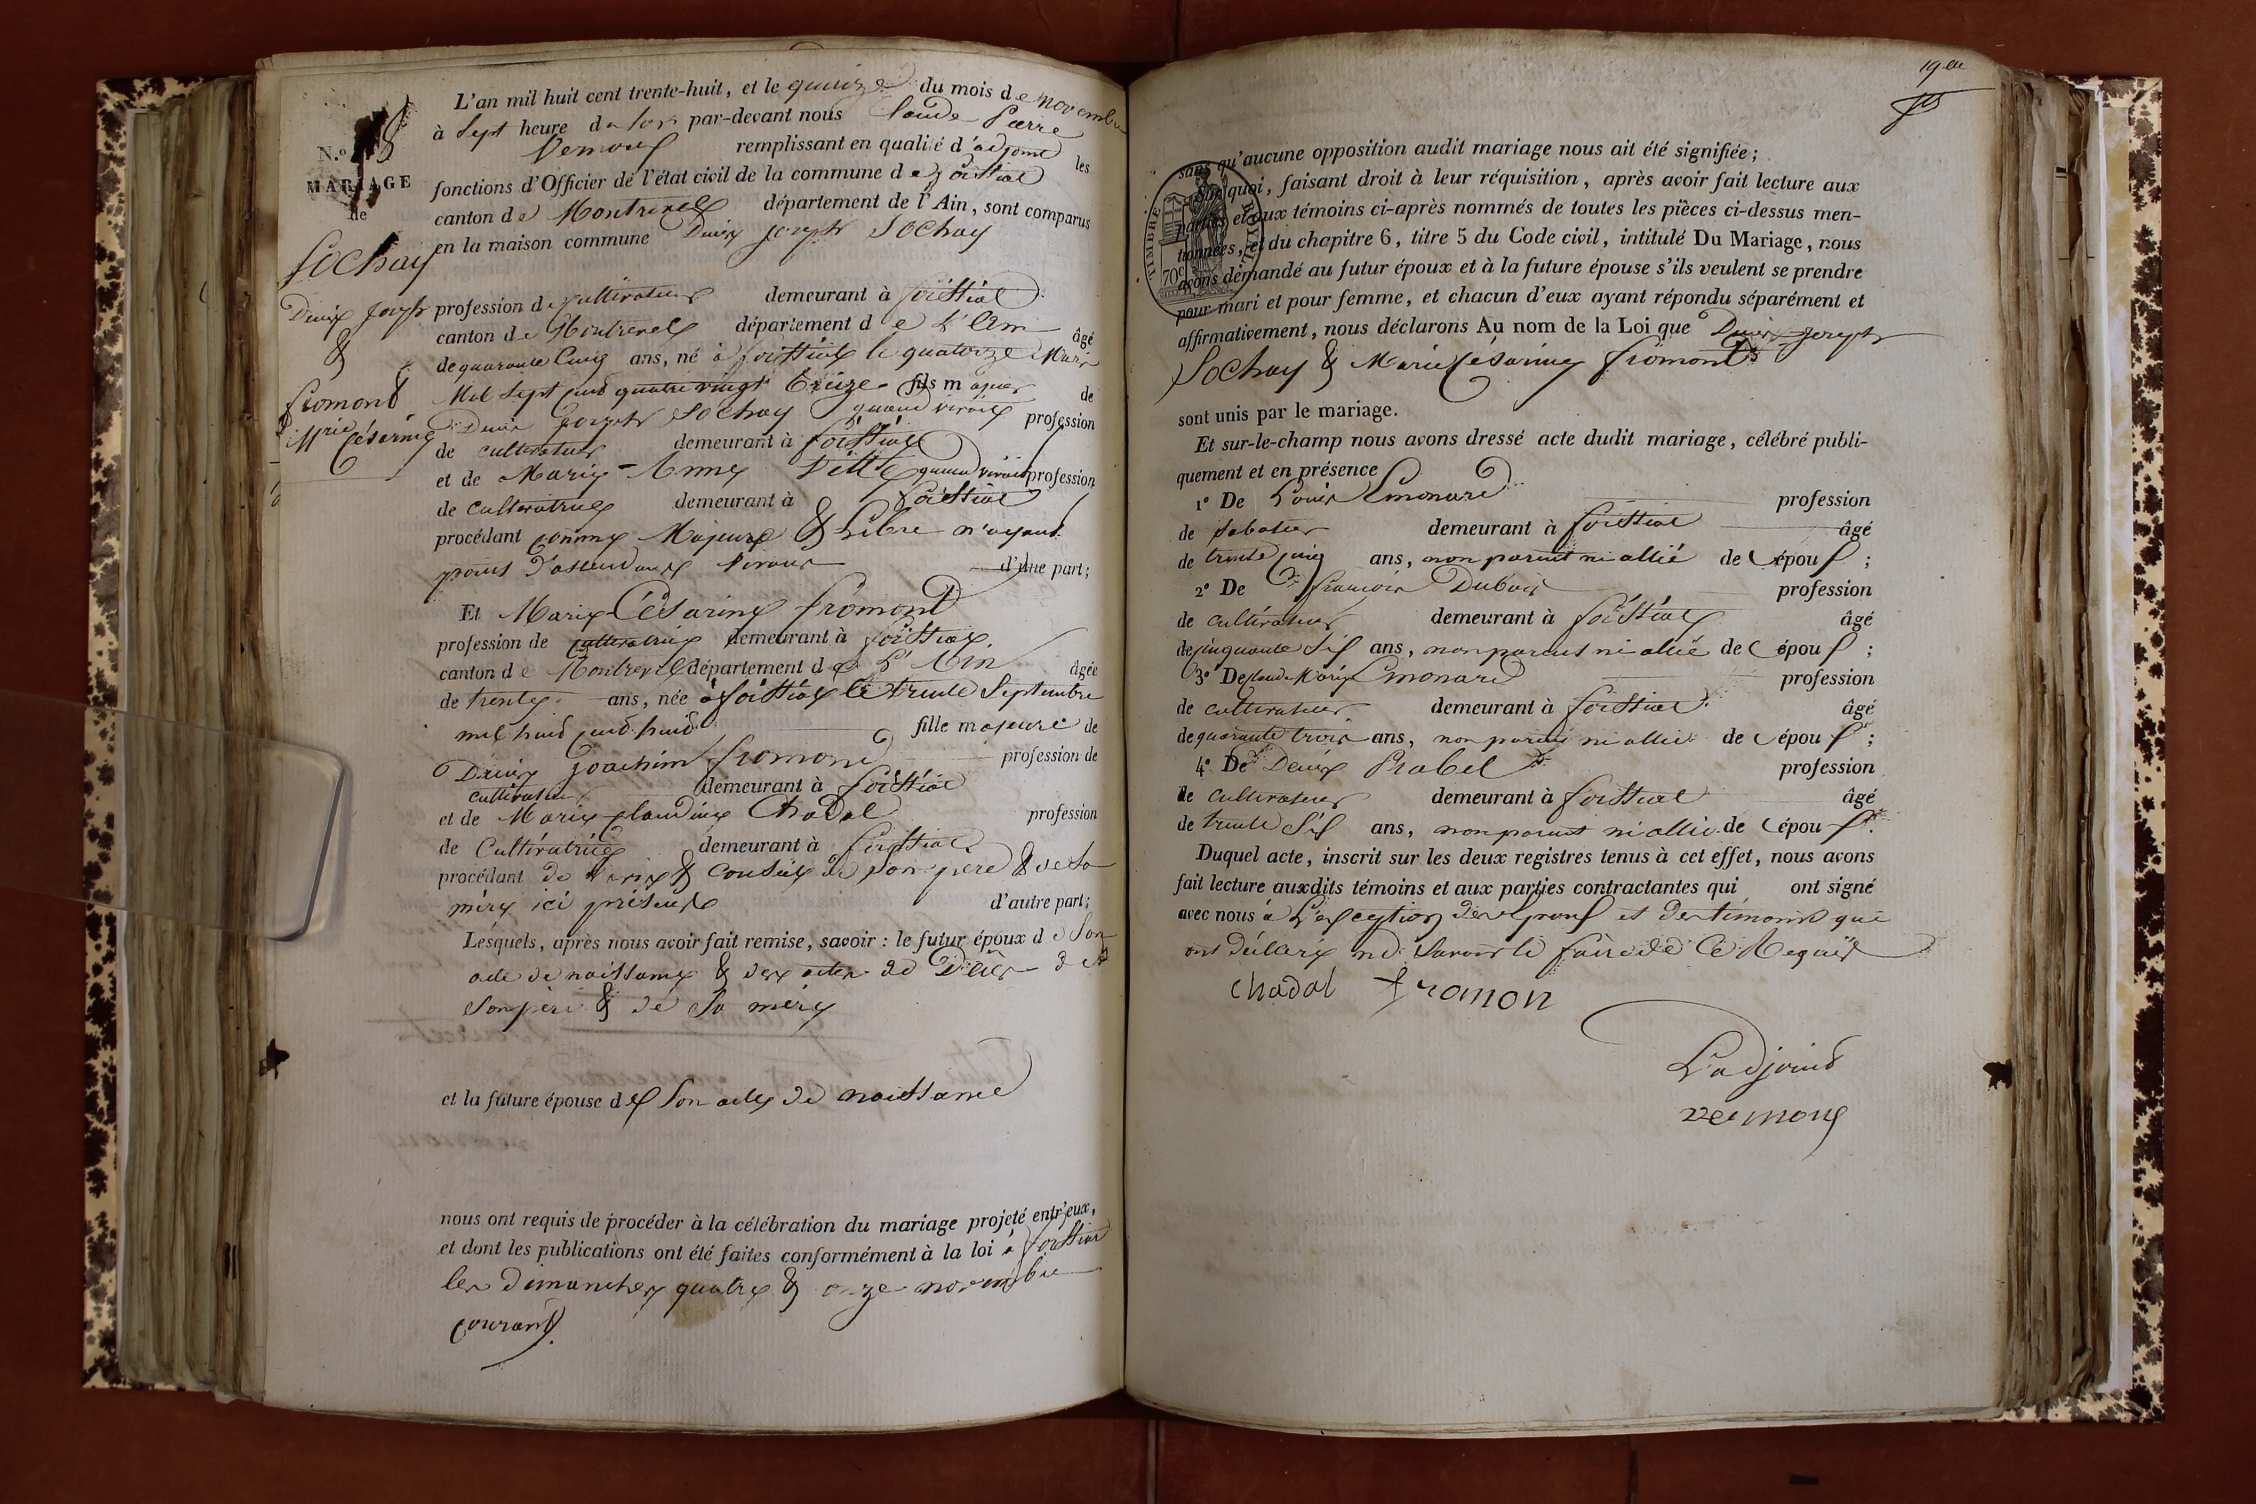 L'an mil huit cent trente-huit, et le quinze du mois de novembre
à sept heure du soir par-devant nous Claude Pierre
remplissant en qualité d'adjoint les
N.º 8
fonctions d'Officier de l'état civil de la commune de foissiat
MARIAGE
canton de Montrevel département de l'Ain, sont comparus
de
en la maison commune Denis joseph Sochay
Sochay
Denis joseph
profession de cultivateur demeurant à foissiat
canton de Montrevel département de L'Ain âgé
&
de quarante Cinq ans, né à foissiat le quatorze Mars
fromont
Mil sept cent quatre vingt treize fils majeur de
Denis joseph Sochay quand vivait profession
Mrie Césarine
de cultivateur demeurant à foissiat
et de Marie-Anne quand vivait profession
de cultivatrice demeurant à foissiat
procédant comme Majeur & Libre n'ayant
point d'assendans vivans d'une part;
Et Marie Césarine fromont
profession de cultivatrice demeurant à foissiat
canton de Montrevel département de L'Ain âgée
de trente ans, née à foissiat le trente Septembre
mil huit cent huit fille majeure de
Denis joachim fromont profession de
cultivateur demeurant à foissiat
et de Marie claudine Chadal profession
de Cultivatrice demeurant à foissiat
procédant de & de son père & de sa
mère ici présents d'autre part;
Lesquels, après nous avoir fait remise, savoir : le futur époux de Son
acte de naissance & des actes de Décès de
Son père & de Sa mère
et la future épouse de Son acte de naissance
nous ont requis de procéder à la célébration du mariage projeté entr'eux,
et dont les publications ont été faites conformément à la loi à foissiat
les dimanches quatre & onze novembre
courant.
19 eme
sans qu'aucune opposition audit mariage nous ait été signifiée;
Sur quoi, faisant droit à leur réquisition, après avoir fait lecture aux
parties et aux témoins ci-après nommés de toutes les pièces ci-dessus men-
tionnées, et du chapitre 6, titre 5 du Code civil, intitulé Du Mariage, nous
avons demandé au futur époux et à la future épouse s'ils veulent se prendre
pour mari et pour femme, et chacun d'eux ayant répondu séparément et
affirmativement, nous déclarons Au nom de la Loi que Denis joseph
Sochay & Marie Césarine fromont
sont unis par le mariage.
Et sur-le-champ nous avons dressé acte dudit mariage, célébré publi-
quement et en présence
1º De Louis Emonard profession
de Sabotier demeurant à foissiat âgé
de trente cinq ans, non parent ni allié de épou ;
2º De françois Dubois profession
de cultivateur demeurant à foissiat âgé
de cinquante Six ans, non parent ni allié de épou ;
3º De Claude Marie Emonard profession
de cultivateur demeurant à foissiat âgé
de quarante trois ans, non parent ni allié de épou ;
4º De Denis Prabel profession
de cultivateur demeurant à foissiat âgé
de trente Six ans, non parent ni allié de épou .
Duquel acte, inscrit sur les deux registres tenus à cet effet, nous avons
fait lecture auxdits témoins et aux parties contractantes qui ont signé
avec nous à L'exception des Epoux et des témoins qui
ont déclaré ne Savoir le faire de Ce Requis
chadal fromon
L'adjoint
TIMBRE ROYAL
70c